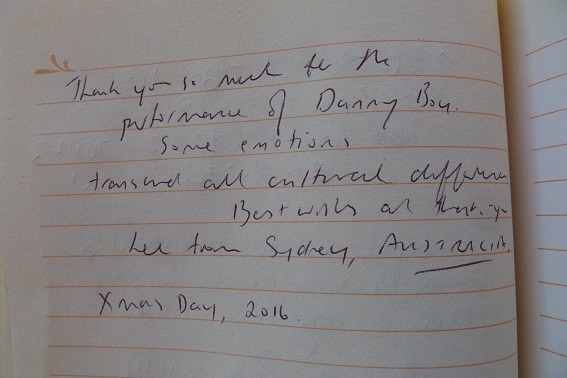 Thank you so much for the
performance of Danny Boy.
Some emotions
transcend all cultural differences
Best wishes and thank-you
from Sydney, AUSTRALIA.
Xmas Day, 2016.